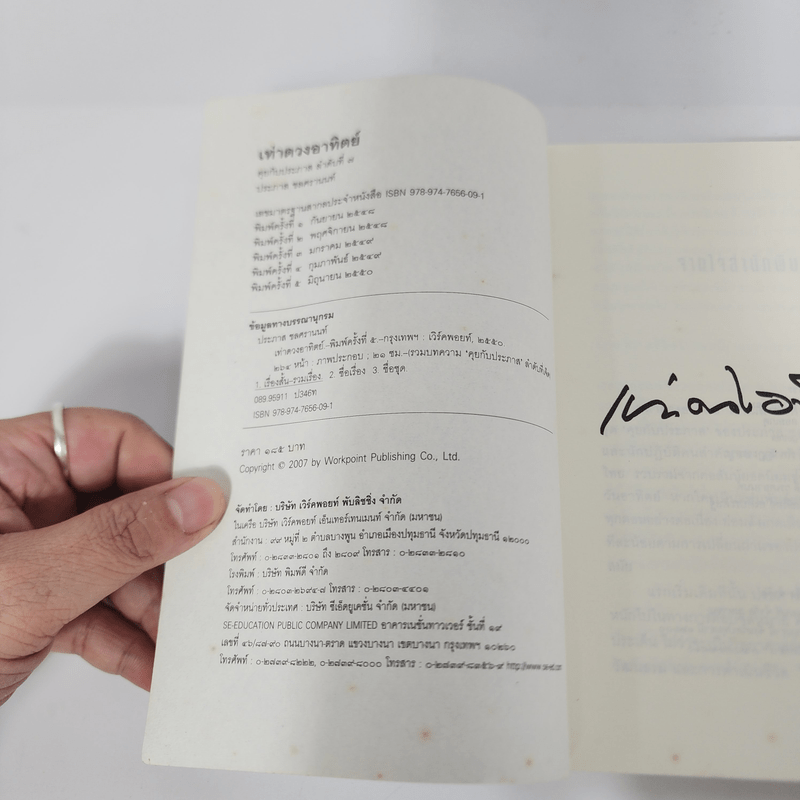 เท่าดวงอาทิตย์
คุยกับประภาส ลำดับที่ ๗
ประภาส ชลศรานนท์
เลขมาตรฐานสากลประจำหนังสือ ISBN 978-974-7656-09-1
พิมพ์ครั้งที่ ๑ กันยายน ๒๕๔๘
พิมพ์ครั้งที่ ๒ พฤศจิกายน ๒๕๔๘
พิมพ์ครั้งที่ ๓ มกราคม ๒๕๔๙
พิมพ์ครั้งที่ ๔ กุมภาพันธ์ ๒๕๔๙
พิมพ์ครั้งที่ ๕ มิถุนายน ๒๕๕๐
ข้อมูลทางบรรณานุกรม
ประภาส ชลศรานนท์
เท่าดวงอาทิตย์.-พิมพ์ครั้งที่ ๕.-กรุงเทพฯ : เวิร์คพอยท์, ๒๕๕๐
๒๖๔ หน้า : ภาพประกอบ ; ๒๑ ซม.-(รวมบทความ 'คุยกับประภาส' ลำดับที่
1. เรื่องสั้น-รวมเรื่อง. 2. ชื่อเรื่อง 3. ชื่อชุด
089.95911 ป346ท
ISBN 978-974-7656-09-1
ราคา ๑๘๕ บาท
Copyright © 2007 by Workpoint Publishing Co., Ltd.
จัดทำโดย : บริษัท เวิร์คพอยท์ พับลิชชิ่ง จำกัด
ในเครือ บริษัท เวิร์คพอยท์ เอ็นเทอร์เทนเมนท์ จำกัด (มหาชน)
สำนักงาน : ๙๙ หมู่ที่ ๒ ตำบลบางพูน อำเภอเมืองปทุมธานี จังหวัดปทุมธานี ๑๒๐๐๐
โทรศัพท์ : ๐-๒๘๓๓-๒๘๐๑ ถึง ๒๘๐๙ โทรสาร : ๐-๒๘๓๓-๒๘๑๐
โรงพิมพ์ : บริษัท พิมพ์ดี จำกัด
โทรศัพท์ : ๐-๒๘๐๓-๒๖๙๔-๗ โทรสาร : ๐-๒๘๐๓-๔๔๐๑
จัดจำหน่ายทั่วประเทศ : บริษัท ซีเอ็ดยูเคชั่น จำกัด (มหาชน)
SE-EDUCATION PUBLIC COMPANY LIMITED อาคารเนชั่นทาวเวอร์ ชั้นที่ ๑๙
เลขที่ ๔๖/๘๗-๙๐ ถนนบางนา-ตราด แขวงบางนา เขตบางนา กรุงเทพฯ ๑๐๒๖๐
โทรศัพท์ : ๐-๒๗๓๙-๘๒๒๒, ๐-๒๗๓๙-๘๐๐๐ โทรสาร : ๐-๒๗๓๙-๘๑๕๖-๙